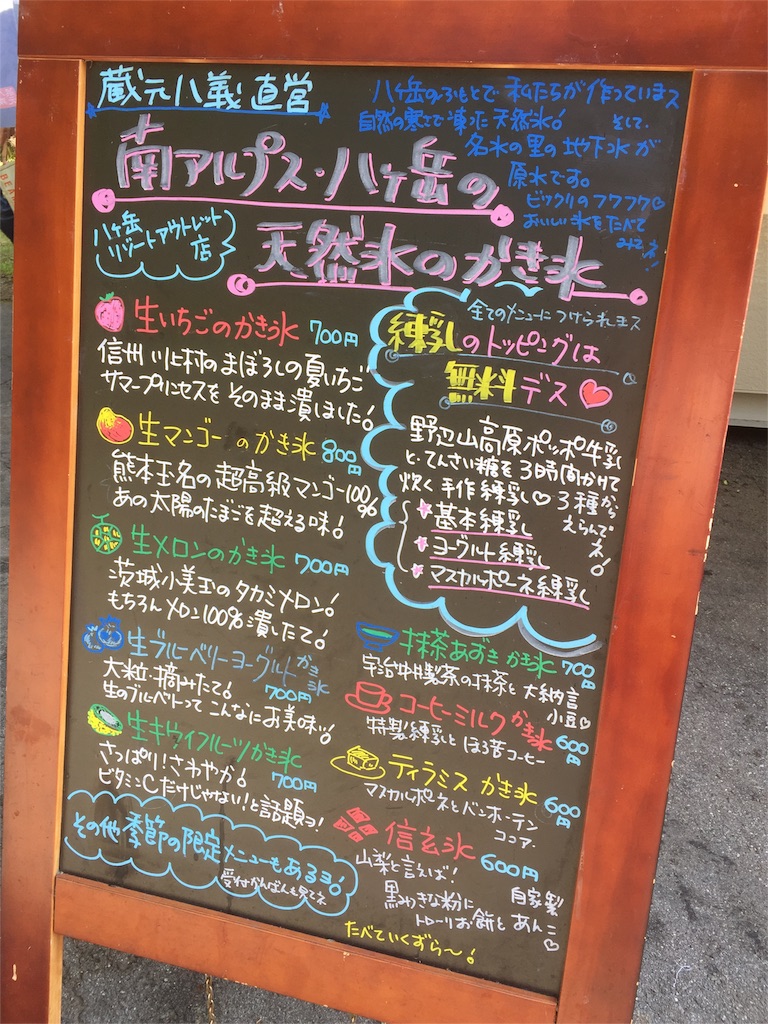 蔵元八義直営
八ヶ岳のふもとで私たちが作っていまス
自然の寒さで凍った天然氷! そして、
名水の里の地下水が
原水です。
ビックリのフワフワ♡
おいしい氷をたべて
みてネ!
南アルプス・八ヶ岳の
天然氷のかき氷
八ヶ岳
リゾートアウトレット
店
生いちごのかき氷 700円
信州川上村のまぼろしの夏いちご
サマープリンセスをそのまま潰しました!
生マンゴーのかき氷 800円
熊本玉名の超高級マンゴー100%
あの太陽のたまごを超える味!
生メロンのかき氷 700円
茨城小美玉のタカミメロン!
もちろんメロン100%潰したて!
生ブルーベリーヨーグルトかき氷
700円
大粒・摘みたて!
生のブルーベリーってこんなにお美味ッ!
生キウイフルーツかき氷
700円
さっぱり!さわやか!
ビタミンCだけじゃない!と話題ヨ!
その他季節の限定メニューもあるヨ!
受付かんばんを見てネ
全てのメニューにつけられまス
練乳のトッピングは
無料デス♥
野辺山高原ポッポ牛乳
と・てんさい糖を3時間かけて
炊く手作練乳♡3種から
えらんで
ネ!
☆基本練乳
☆ヨーグルト練乳
☆マスカルポーネ練乳
抹茶あずきかき氷 700円
宇治中井製茶の抹茶と大納言
小豆♡
コーヒーミルクかき氷 600円
特製練乳とほろ苦コーヒー
ティラミスかき氷 600円
マスカルポーネとバンホーテン
ココア.
信玄氷 600円
山梨と言えば!
黒みつきな粉に 自家製
トロ〜リお餅とあんこ♡
たべていくずら〜!